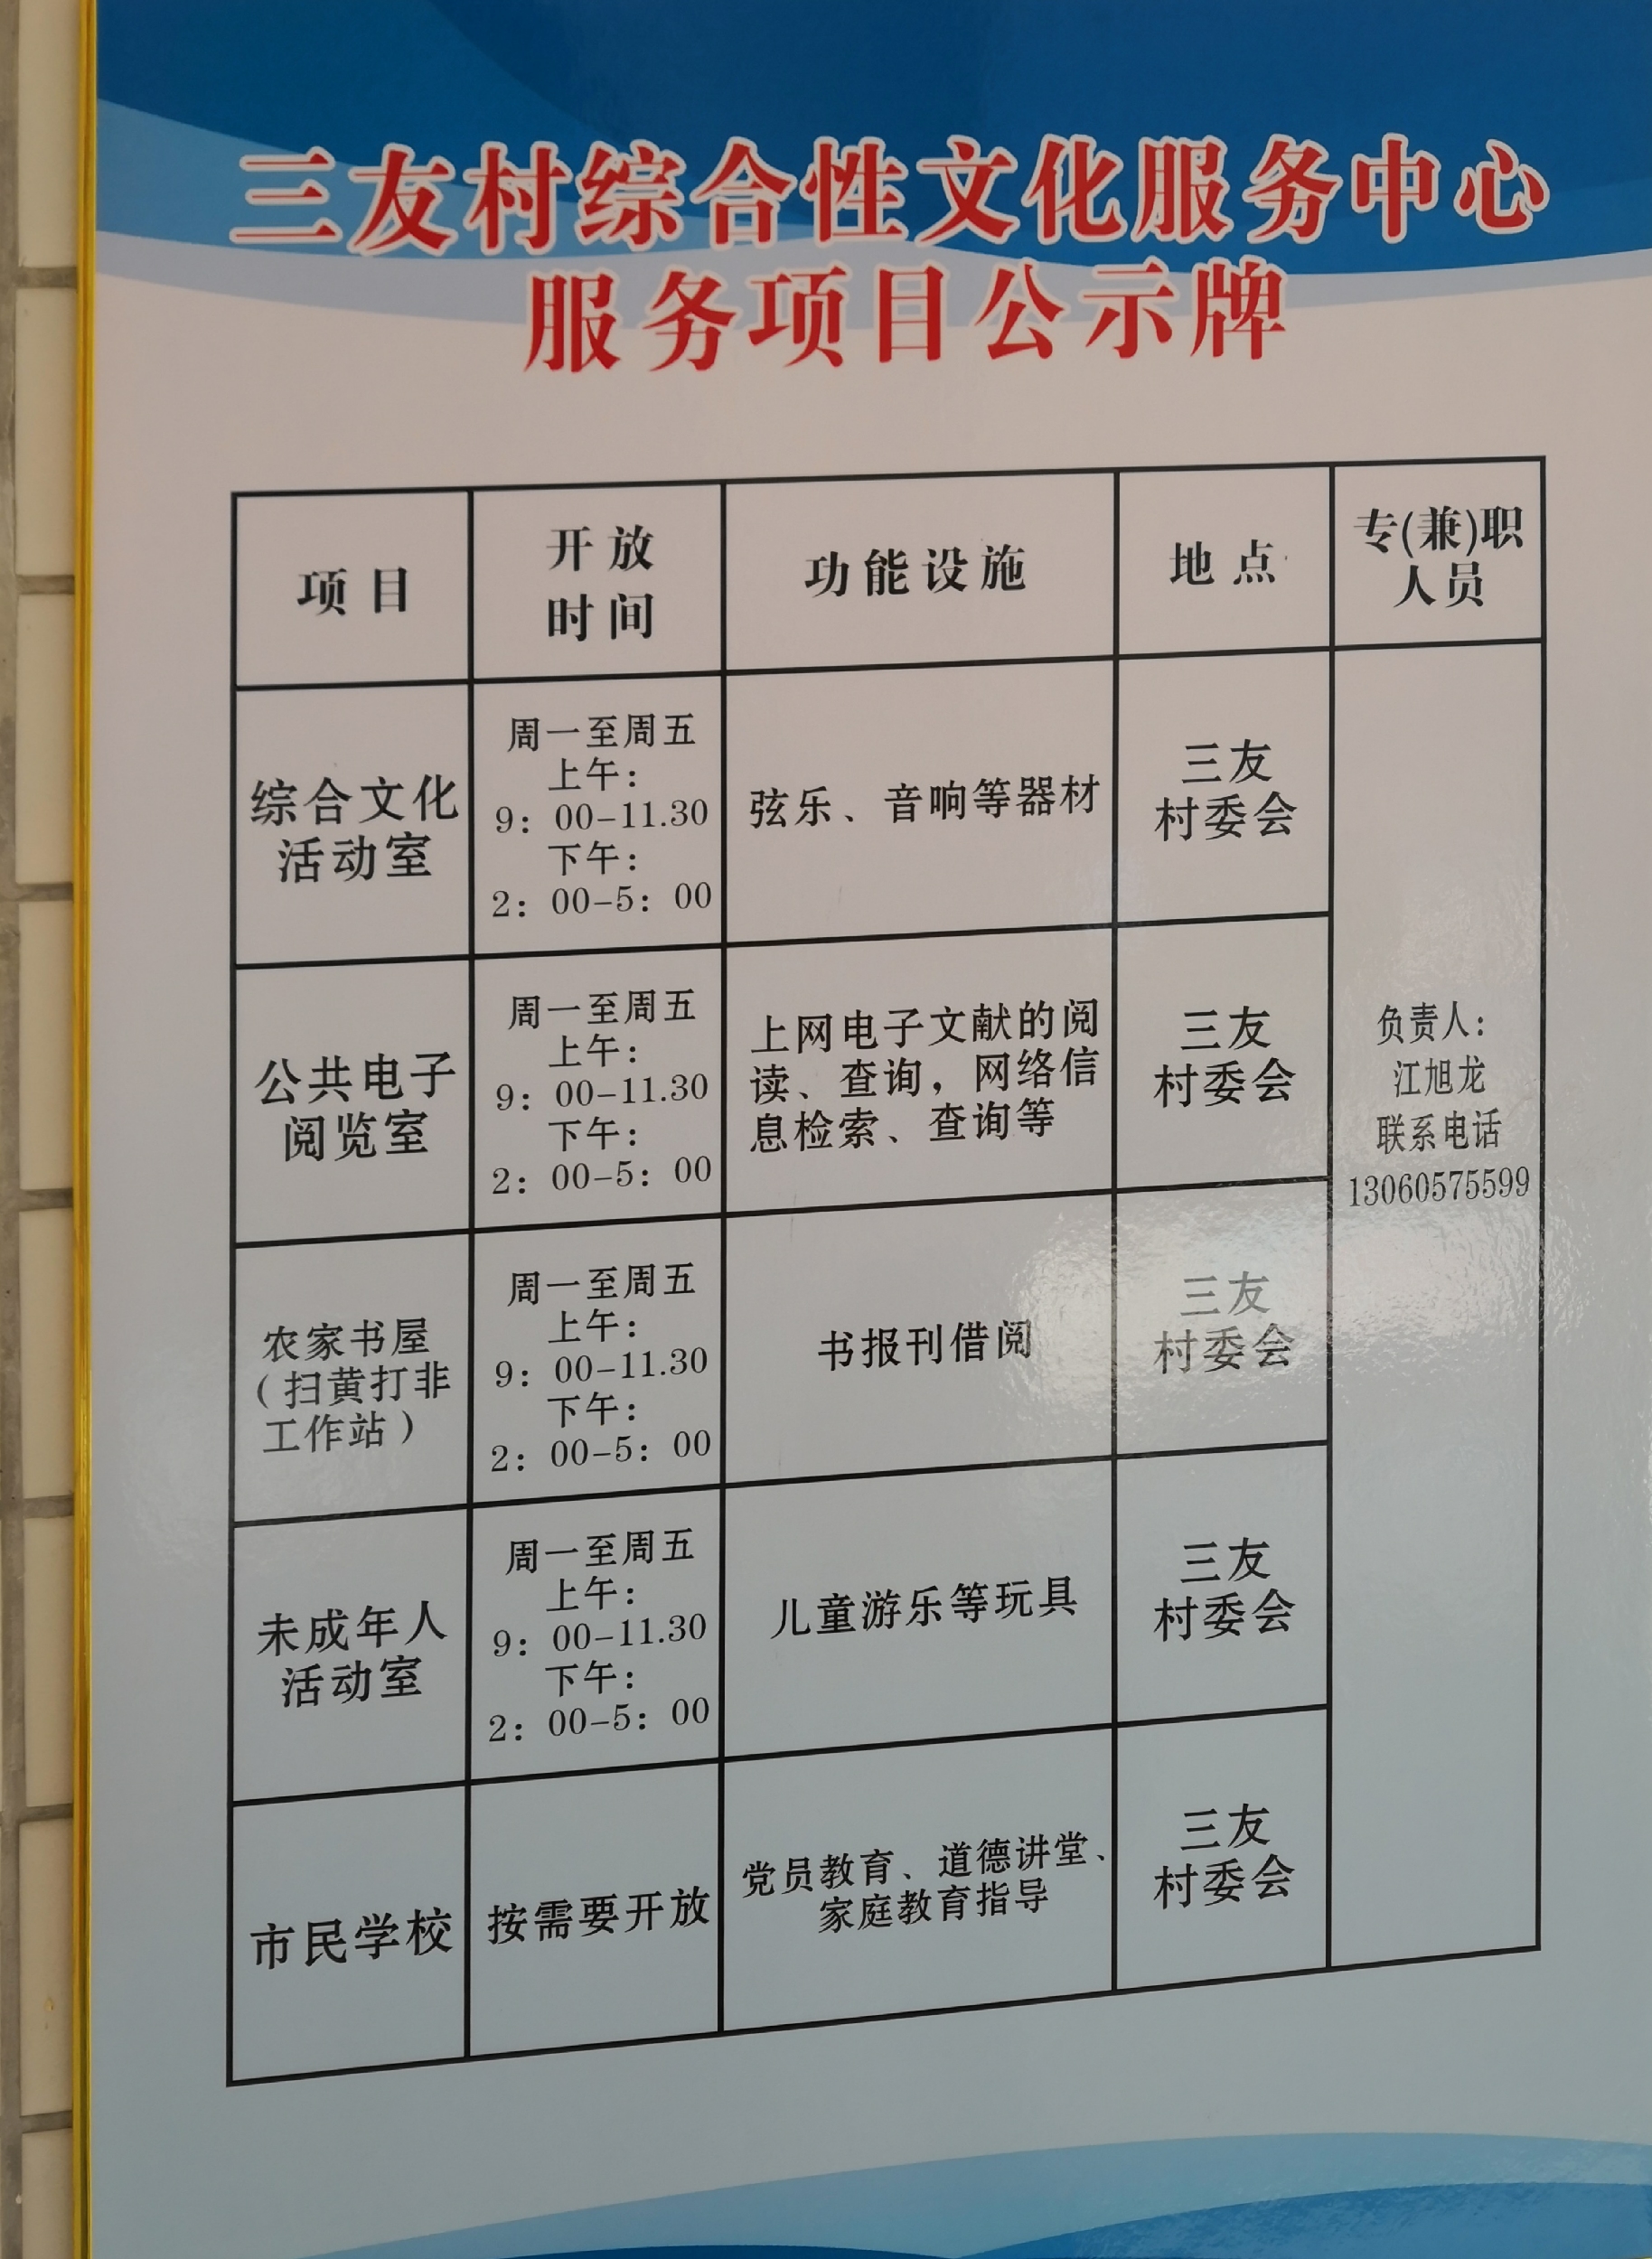 三友村综合性文化服务中心
服务项目公示牌
项目
开放
时间
功能设施
地点
专(兼)职
人员
综合文化
活动室
周一至周五
上午：
9：00-11.30
下午：
2：00-5：00
弦乐、音响等器材
三友
村委会
公共电子
阅览室
周一至周五
上午：
9：00-11.30
下午：
2：00-5：00
上网电子文献的阅
读、查询，网络信
息检索、查询等
三友
村委会
负责人：
江旭龙
联系电话
13060575599
农家书屋
（扫黄打非
工作站）
周一至周五
上午：
9：00-11.30
下午：
2：00-5：00
书报刊借阅
三友
村委会
未成年人
活动室
周一至周五
上午：
9：00-11.30
下午：
2：00-5：00
儿童游乐等玩具
三友
村委会
市民学校
按需要开放
党员教育、道德讲堂、
家庭教育指导
三友
村委会